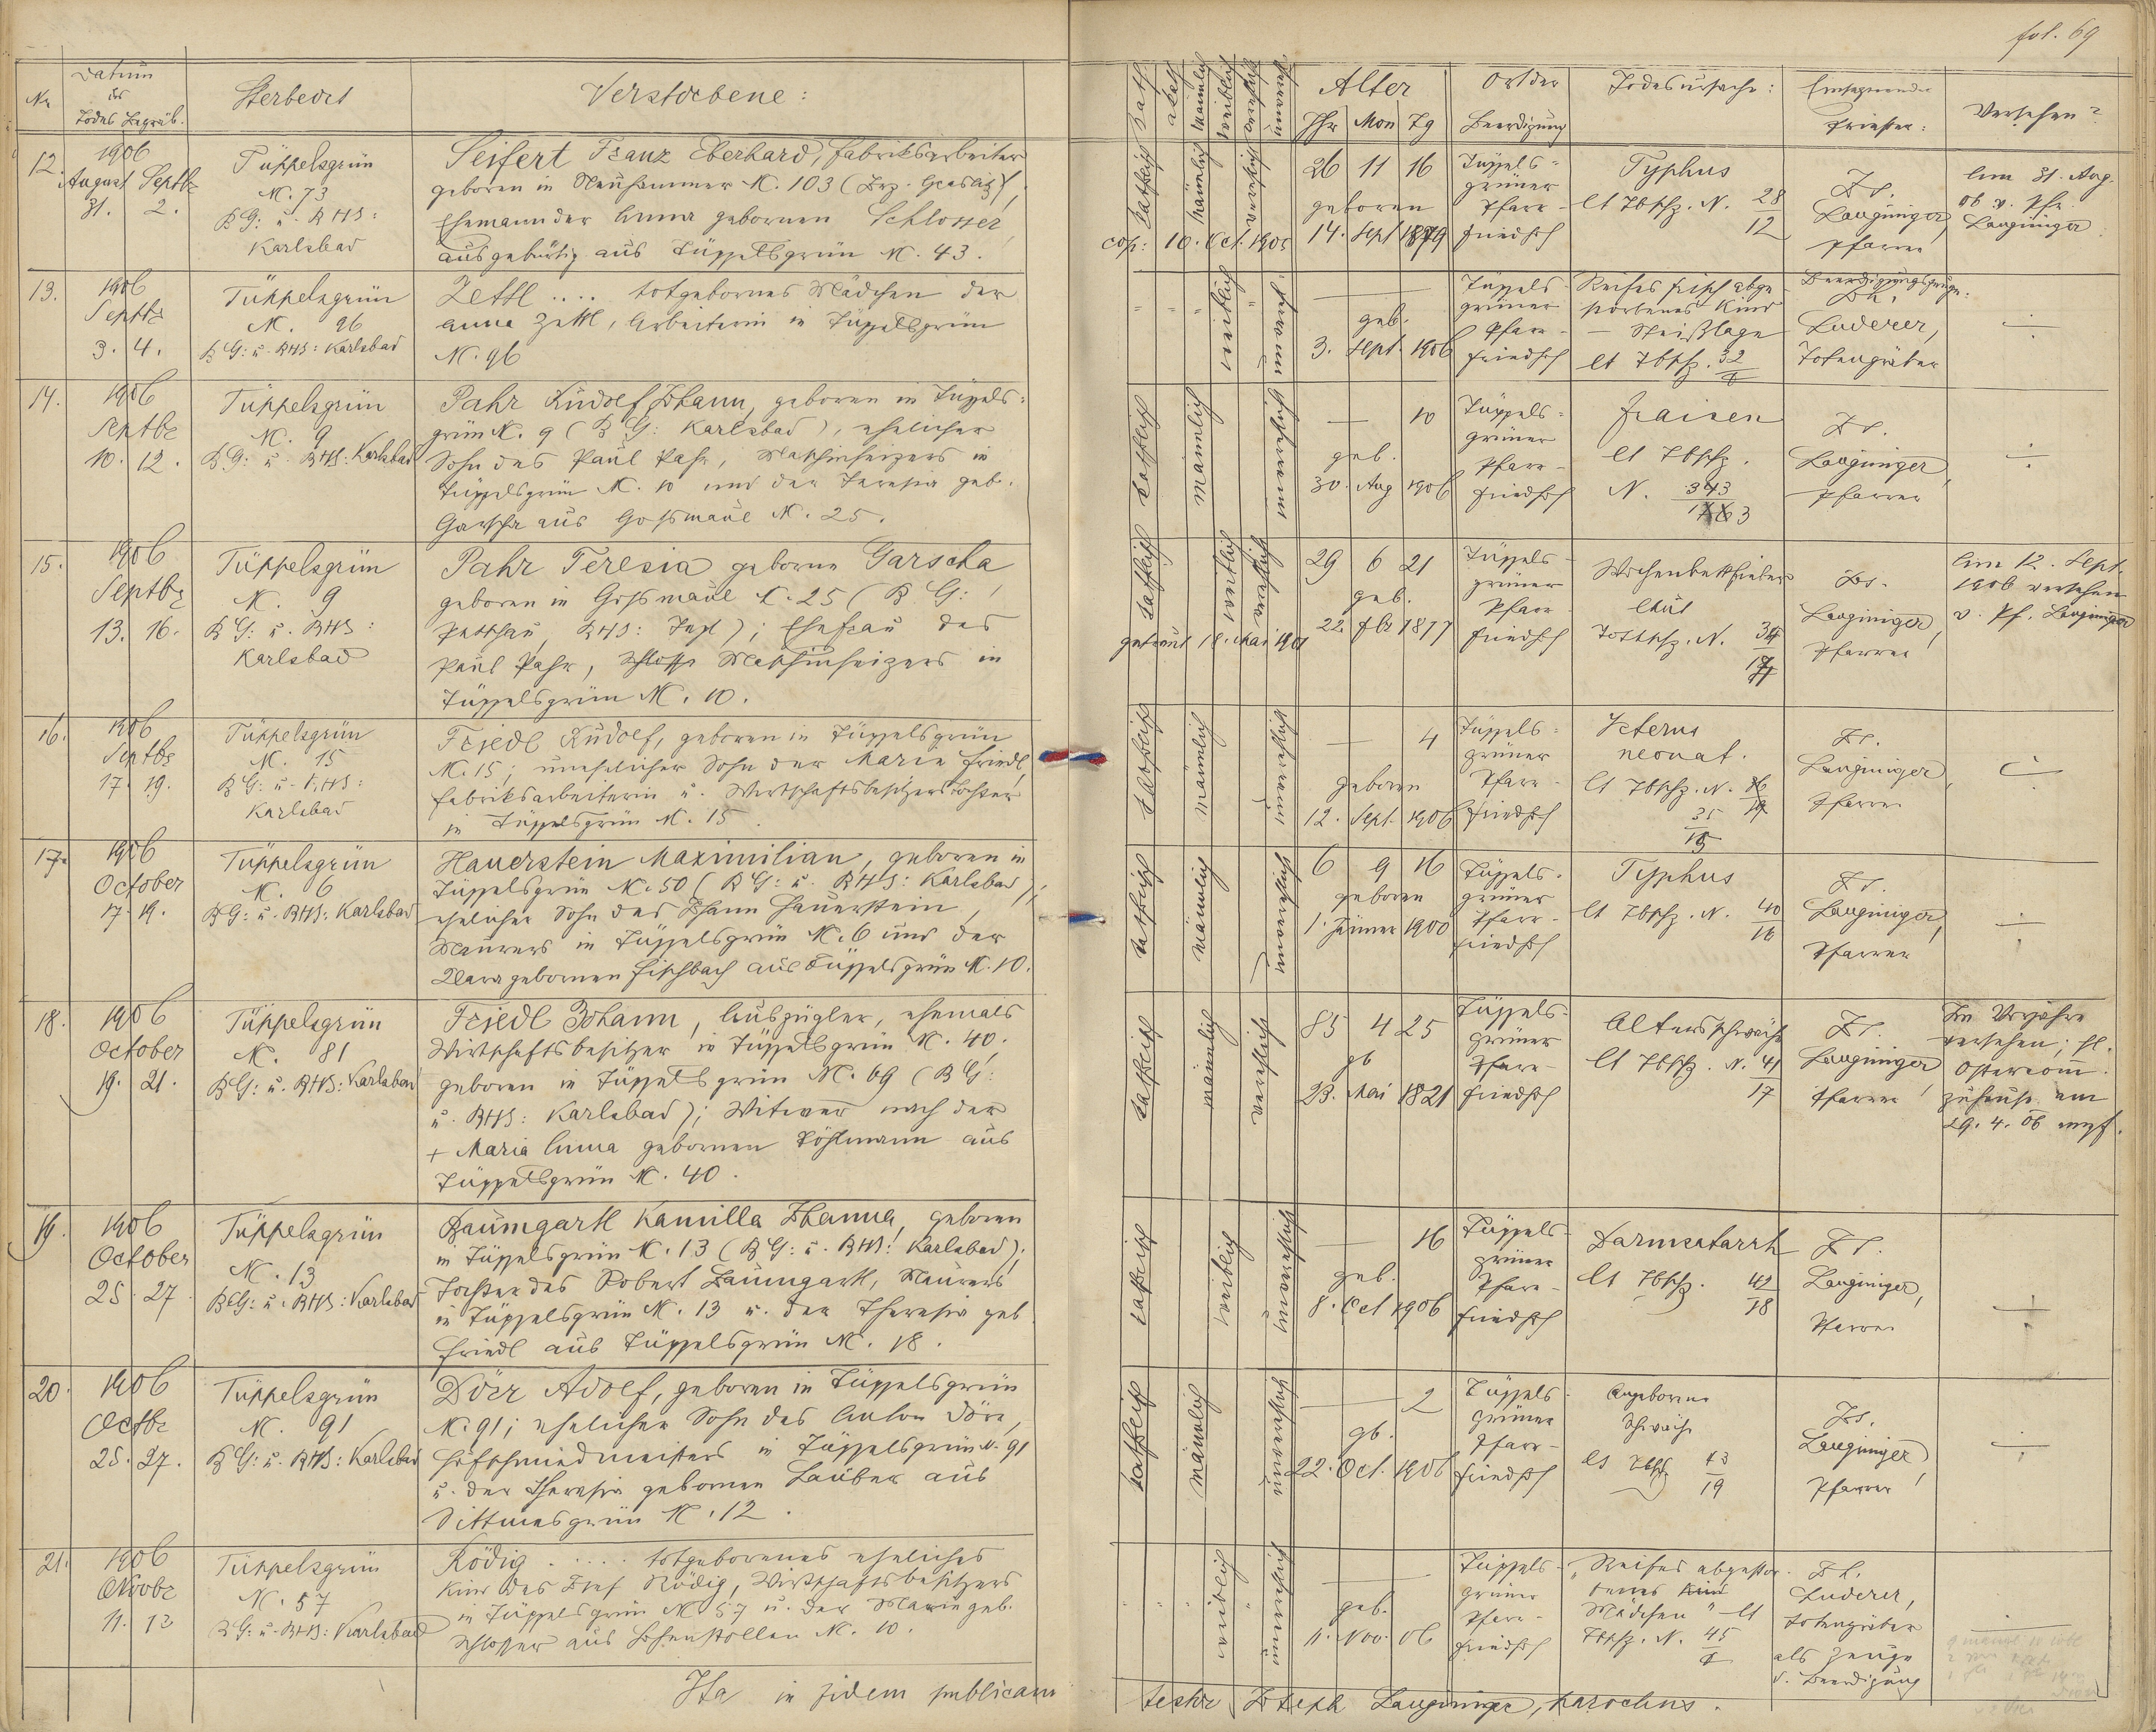 fol. 69
Nr
Datum
des
Todes Begräb.
Sterbeort
Verstorbene:
Alter
Jhr Mon Tg
Ort der
Beerdigung
Todesursache:
Einsegnender
Priester:
Versehen?
12.
1906
August Septbr
31. 2.
Tüppelsgrün
N. 73
BG: u. BHS:
Karlsbad
Seifert Franz Eberhard, Fabriksarbeiter
geboren in Neuhammer N. 103 (Bez. Graslitz),
Ehemann der Anna gebornen Schlosser,
aus gebürtig aus Tüppelsgrün N. 43.
katholisch männlich verehelicht
26 11 16
geboren
14. Sept 1879
cop: 10. Oct. 1905
Tüppels-
grüner
Pfarr-
friedhof
Typhus
lt Tbschz. N. 28
12
Jos.
Lauginger,
Pfarrer
Am 31. Aug.
06 v. Pfr.
Lauginger
13.
1906
Septbr
3. 4.
Tüppelsgrün
N. 96
BG: u. BHS: Karlsbad
Zettl .... totgebornes Mädchen der
Anna Zettl, Arbeiterin in Tüppelsgrün
N. 96
" " " weiblich "
geb.
3. Sept. 1906
Tüppels-
grüner
Pfarr-
friedhof
Reifes frisch abge-
storbenes Kind
— Steißlage
lt Tbschz. 32
Beerdigungszeuge:
Joh.
Luderer,
Totengräber
14.
1906
Septbr
10. 12.
Tüppelsgrün
N. 9
BG: u. BHS: Karlsbad
Pahr Rudolf Johann, geboren in Tüppels-
grün N. 9 (BG: Karlsbad), ehelicher
Sohn des Paul Pahr, Maschinheizers in
Tüppelsgrün N. 10 und der Teresia geb.
Garscha aus Goßmaul N. 25.
katholisch männlich
— 10
geb.
30. Aug 1906
Tüppels-
grüner
Pfarr-
friedhof
Fraisen
lt Tbschz.
N. 343
13
Jos.
Lauginger,
Pfarrer
15.
1906
Septbr
13. 16.
Tüppelsgrün
N. 9
BG: u. BHS:
Karlsbad
Pahr Teresia geborne Garscha,
geboren in Goßmaul N. 25 (BG:
Petschau, BHS: Tepl); Ehefrau des
Paul Pahr, Maschinheizers in
Tüppelsgrün N. 10.
katholisch weiblich verehelicht
29 6 21
geb.
22. Fbr 1877
getraut 18. Mai 1901
Tüppels-
grüner
Pfarr-
friedhof
Wochenbettfieber
laut
Todtschz. N. 34
14
Jos.
Lauginger,
Pfarrer
Am 12. Sept.
1906 versehen
v. Pf. Lauginger
16.
1906
Septbr
17. 19.
Tüppelsgrün
N. 15
BG: u. BHS:
Karlsbad
Friedl Rudolf, geboren in Tüppelsgrün
N. 15; unehelicher Sohn der Marie Friedl,
Fabriksarbeiterin u. Wirtschaftsbesitzerstochter
in Tüppelsgrün N. 15.
katholisch männlich
— 4
geboren
12. Sept. 1906
Tüppels-
grüner
Pfarr-
friedhof
Icterus
neonat.
lt Tbschz. N.
35
15
Jos.
Lauginger,
Pfarrer
17.
1906
October
17. 19.
Tüppelsgrün
N. 6
BG: u. BHS: Karlsbad
Hauerstein Maximilian, geboren in
Tüppelsgrün N. 50 (BG: u. BHS: Karlsbad);
ehelicher Sohn des Johann Hauerstein,
Maurers in Tüppelsgrün N. 6 und der
Klara gebornen Fischbach aus Tüppelsgrün N. 10.
katholisch männlich
6 9 16
geboren
1. Jänner 1900
Tüppels-
grüner
Pfarr-
friedhof
Typhus
lt Tbschz. N. 40
16
Jos.
Lauginger,
Pfarrer
18.
1906
October
19. 21.
Tüppelsgrün
N. 81
BG: u. BHS: Karlsbad
Friedl Johann, Auszügler, ehemals
Wirtschaftsbesitzer in Tüppelsgrün N. 40,
geboren in Tüppelsgrün N. 69 (BG:
u. BHS: Karlsbad); Witwer nach der
+ Maria Anna gebornen Pöhlmann aus
Tüppelsgrün N. 40.
katholisch männlich verehelicht
85 4 25
gb
23. Mai 1821
Tüppels-
grüner
Pfarr-
friedhof
Altersschwäche
lt Tbschz. N. 41
17
Jos.
Lauginger,
Pfarrer
Im Vorjahre
versehen; hl.
Ostercom̄.
zuhause am
29. 4. 06 empf.
19.
1906
October
25. 27.
Tüppelsgrün
N. 13
BG: u. BHS: Karlsbad
Baumgartl Kamilla Johanna, geboren
in Tüppelsgrün N. 13 (BG: u. BHS: Karlsbad);
Tochter des Robert Baumgartl, Maurers
in Tüppelsgrün N. 13 u. der Theresia geb.
Friedl aus Tüppelsgrün N. 18.
katholisch weiblich
— 16
geb.
8. Oct 1906
Tüppels-
grüner
Pfarr-
friedhof
Darmcatarrh
lt Tbschz. 42
18
Jos.
Lauginger,
Pfarrer
20.
1906
Octbr
25. 27.
Tüppelsgrün
N. 91
BG: u. BHS: Karlsbad
Dörr Adolf, geboren in Tüppelsgrün
N. 91; ehelicher Sohn des Anton Dörr,
Hufschmiedmeisters in Tüppelsgrün N. 91
u. der Theresia gebornen Lauber aus
Dittmesgrün N. 12.
katholisch männlich
— 2
gb.
22. Oct. 1906
Tüppels-
grüner
Pfarr-
friedhof
Angeborne
Schwäche
lt Tbschz. 43
19
Jos.
Lauginger,
Pfarrer
21.
1906
Novbr
11. 13
Tüppelsgrün
N. 57
BG: u. BHS: Karlsbad
Rödig ..... totgeborenes eheliches
Kind des Josef Rödig, Wirtschaftsbesitzers
in Tüppelsgrün N. 57 u. der Marie geb.
Schlosser aus Hohenstollen N. 10.
" " " weiblich "
geb.
11. Nov. 06
Tüppels-
grüner
Pfarr-
friedhof
"Reifes abgestor-
benes Kind
Mädchen" lt
Tbschz. N. 45
Joh.
Luderer,
Totengräber
als Zeuge
d. Beerdigung
Ita in fidem publicam
testor Joseph Lauginger, parochus.